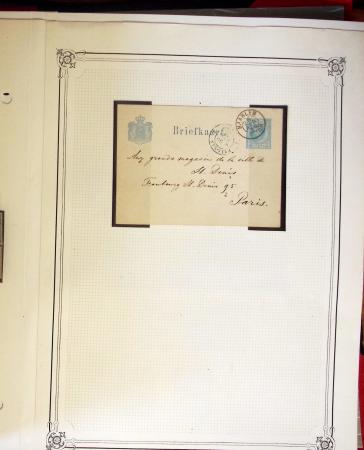 Briefkaart
HAARLEM
Aux grands magasins de la ville de
St. Denis
Faubourg St. Denis 95
à
Paris.